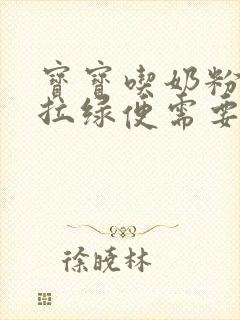 寶寶喫奶粉
拉綠便需要
徐曉林